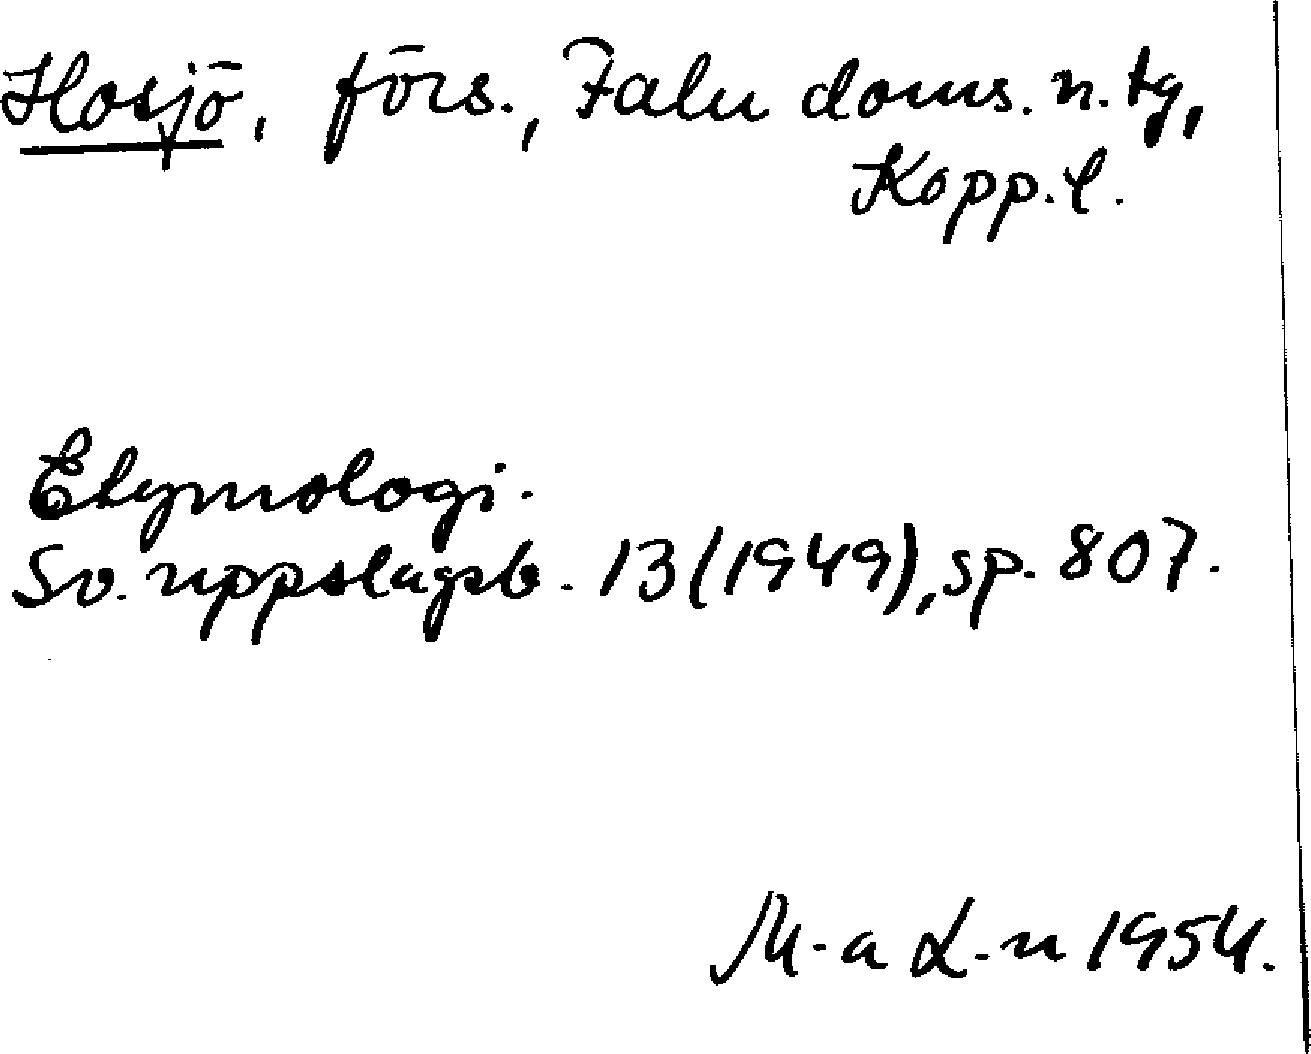 Hosjö, förs., Falu doms. n. tg,
Kopp. l.
Etymologi.
Sv. uppslagsb. 13 (1949), sp. 807.
M-a L-n 1954.